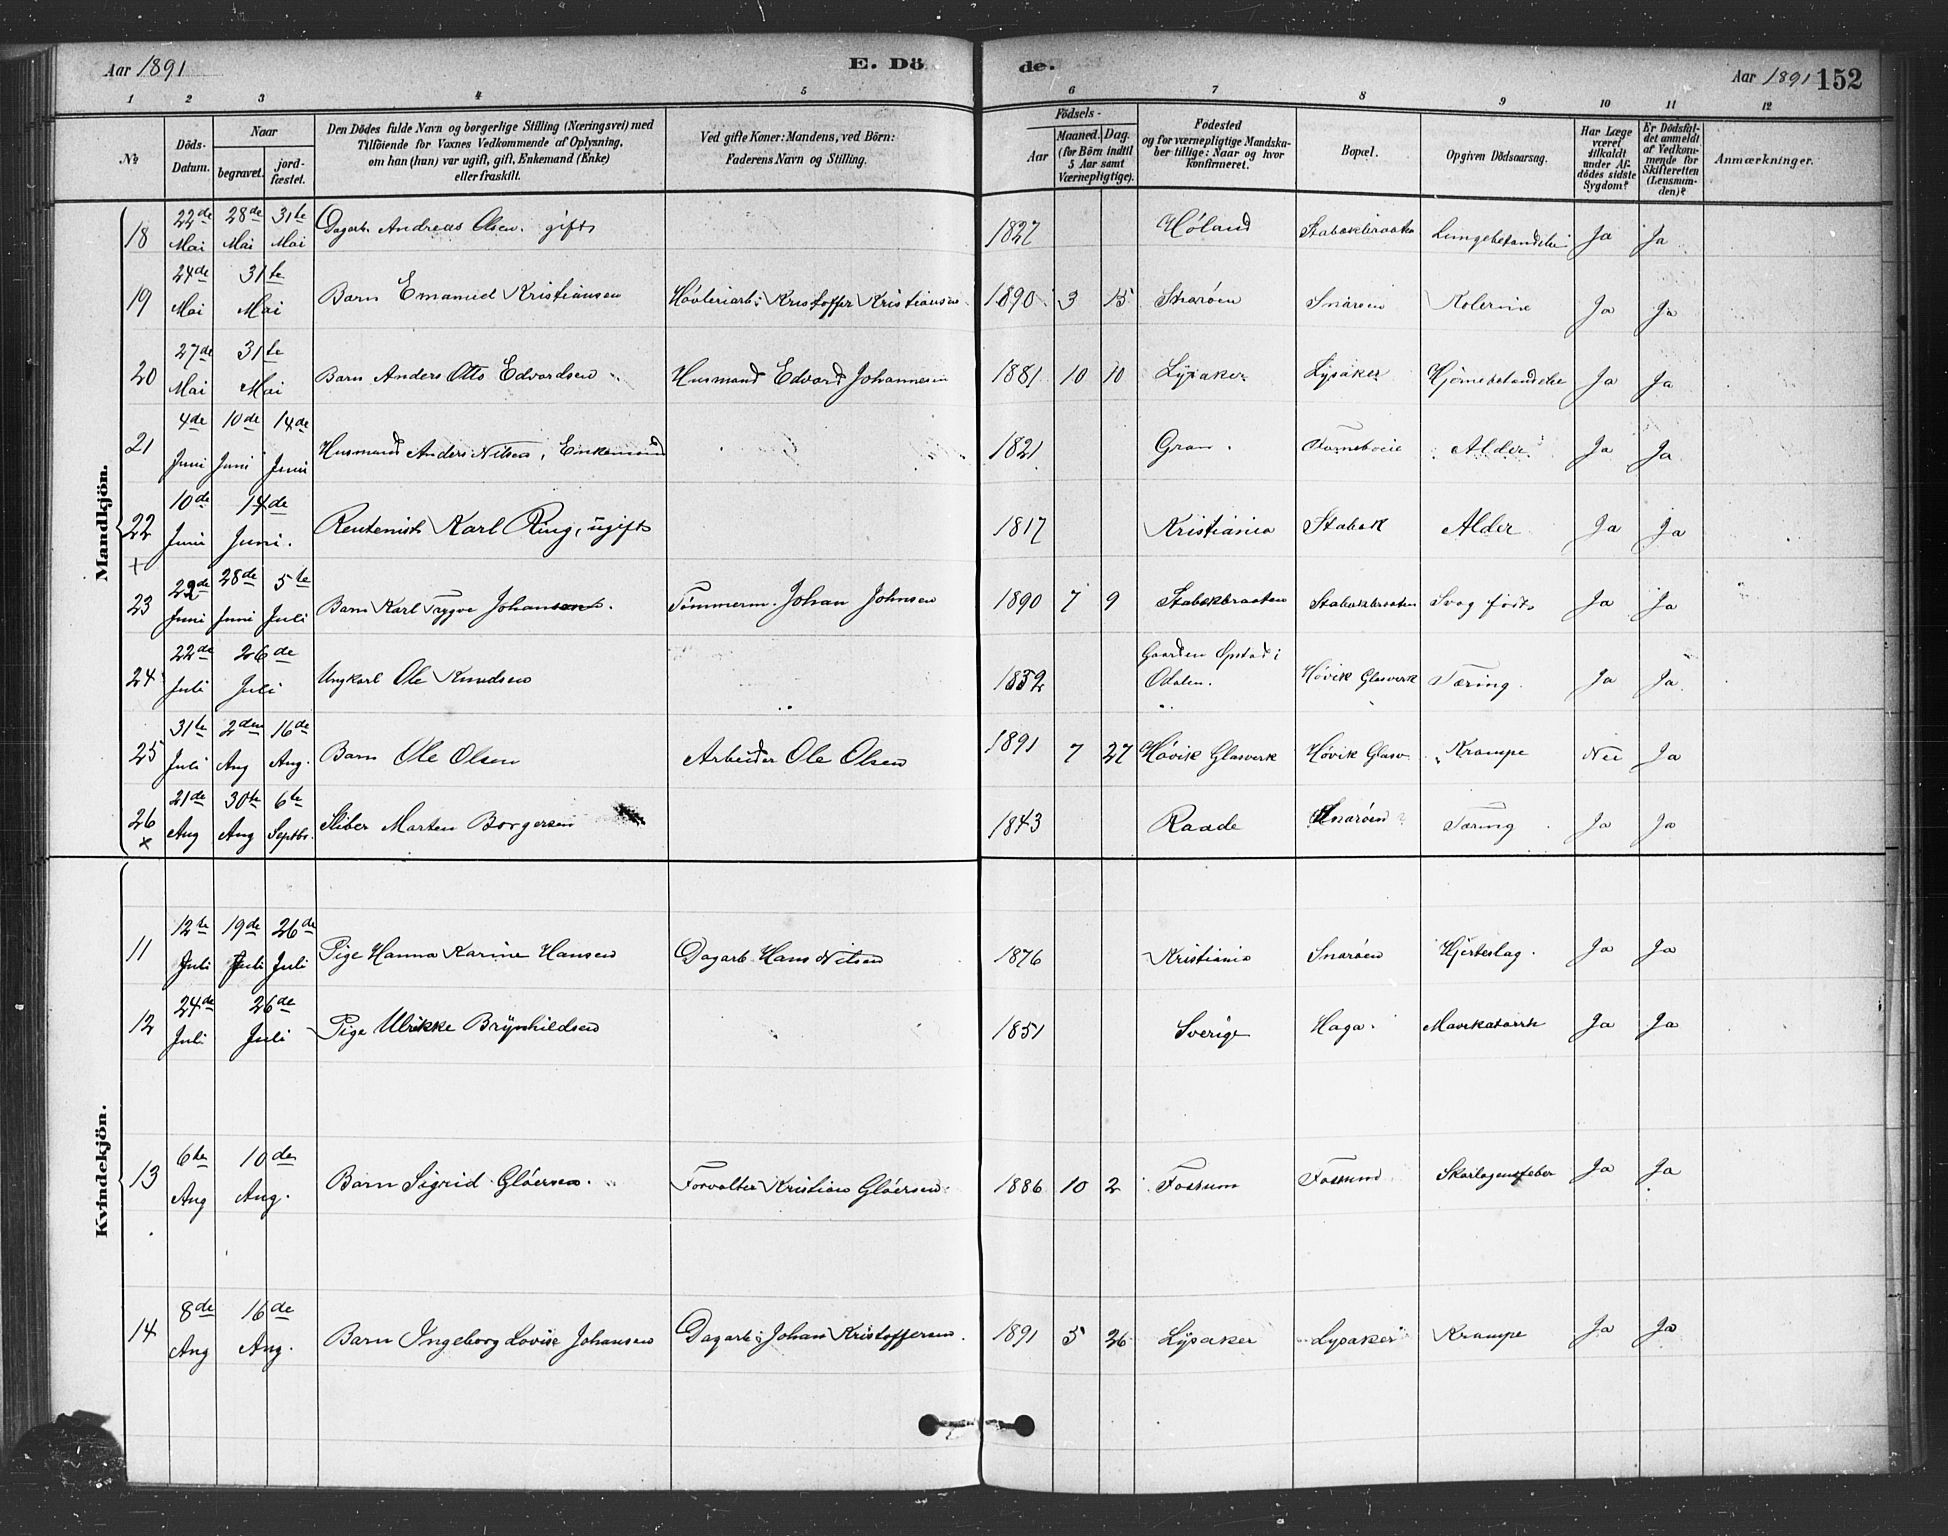 Aar 1891 E. Dö de. Aar 1891 152
1 2 3 4 5 6 7 8 9 10 11 12
No. Döds-Datum. Naar begravet. jordfæstet. Den Dödes fulde Navn og borgerlige Stilling (Næringsvei) med Tilföiende for Voxnes Vedkommende af Oplysning, om han (hun) var ugift, gift, Enkemand (Enke) eller fraskilt. Ved gifte Koner: Mandens, ved Börn: Faderens Navn og Stilling. Födsels- Aar Maaned. Dag. (for Börn indtil 5 Aar samt Værnepligtige). Födested og for værnepligtige Mandskaber tillige: Naar og hvor konfirmeret. Bopæl. Opgiven Dödsaarsag. Har Læge været tilkaldt under Afdödes sidste Sygdom? Er Dödsfaldet anmeldt af Vedkommende for Skifteretten (Lensmanden)? Anmærkninger.
Mandkjön.
18 22de Mai 28de Mai 31te Mai Dagarb. Andreas Olsen. gift 1827 Høland Stabækbraaten Lungebetændelse Ja Ja
19 24de Mai 31te Mai Barn Emanuel Kristiansen Høvleriarb: Kristoffer Kristiansen 1890 3 15 Snarøen Snarøen Kolerine Ja Ja
20 27de Mai 31te Mai Barn Anders Otto Edvardsen Husmand Edvard Johannesen 1881 10 10 Lysaker Lysaker Hjernebetændelse Ja Ja
21 4de Juni 10de Juni 14de Juni Husmand Anders Nilsen, Enkemand 1821 Gran Alder Ja Ja
22 + 10de Juni 14de Juni. Rentenist Karl Ring, ugift 1817 Kristiania Stabæk Alder Ja Ja
23 22de Juni 28de Juni 5te Juli Barn Karl Trygve Johansen. Tömmerm. Johan Johnsen 1890 7 9 Stabækbraaten Stabækbraaten Svag födt Ja Ja
24 22de Juli 26de Juli Ungkarl Ole Knudsen 1832 Gaarden Opstad i Odalen. Høvik Glasverk Tæring. Ja Ja
25 31te Juli 2den Aug 16de Aug. Barn Ole Olsen Arbeider Ole Olsen 1891 7 27 Høvik Glasverk Høvik Glasv Krampe Nei Ja
26 x 21de Aug 30te Aug 6te Septbr. Sliber Marten Borgersen 1843 Raade Snarøen Tæring Ja Ja
Kvindekjön.
11 12te Juli 19de Juli 26de Juli Pige Hanna Karine Hansen Dagarb. Hans Nilsen 1876 Kristiania Snarøen Hjerteslag. Ja Ja
12 24de Juli 26de Juli Pige Ulrikke Brynhildsen 1851 Sverige Haga. Mavekatarrh Ja Ja
13 6te Aug 10de Aug. Barn Sigrid Glöersen. Forvalter Kristian Glöersen 1886 10 2 Fossum Fossum Skarlagensfeber Ja Ja
14 8de Aug 16de Aug. Barn Ingeborg Lovise Johansen Dagarb: Johan Kristoffersen. 1891 5 26 Lysaker Lysaker Krampe Ja Ja